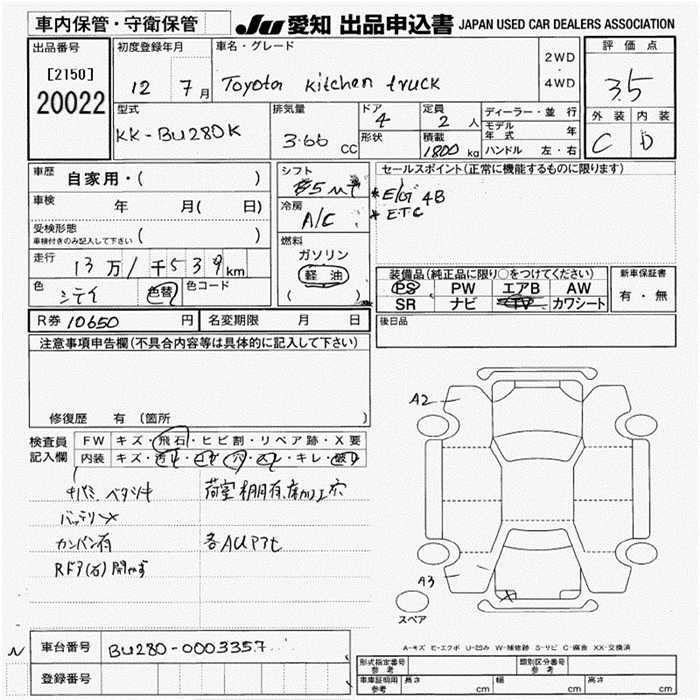 車内保管・守衛保管
JU 愛知 出品申込書 JAPAN USED CAR DEALERS ASSOCIATION
出品番号
[2150]
20022
初度登録年月
12 7月
車名・グレード
Toyota kitchen truck
2WD
・
4WD
評価点
3.5
外装 内装
C D
型式
KK-BU280K
排気量
3.66 CC
ドア
4
形状
定員
2 人
積載
1800 kg
ディーラー・並行
モデル年式 年
ハンドル 左・右
車歴 自家用・( )
車検 年 月( 日)
受検形態
車検付きのみ記入して下さい ( )
走行 13万/千539km
色 シテイ 色替 色コード
シフト
F5MT
冷房
A/C
燃料
ガソリン
軽油
( )
セールスポイント(正常に機能するものに限ります)
*E/G 4B
*ETC
装備品(純正品に限り○をつけてください)
PS PW エアB AW
SR ナビ TV カワシート
新車保証書
有・無
R券 10650 円 名変期限 月 日
後日品
注意事項申告欄(不具合内容等は具体的に記入して下さい)
修復歴 有(箇所 )
検査員記入欄
FW キズ・飛石・ヒビ割・リペア跡・X要
内装 キズ・汚れ・コゲ・穴・スレ・キレ・破れ
キバミ、ベタツキ
バッテリーX
カンバン有
各AUアセ
A2
A3
X
スペア
N
車台番号 BU280-0003357
登録番号
A-キズ E-エクボ U-凹み W-補修跡 S-サビ C-腐食 XX-交換済
形式指定番号
参考
類別区分番号
参考
車庫証明用
参考
長さ cm 幅 cm 高さ cm